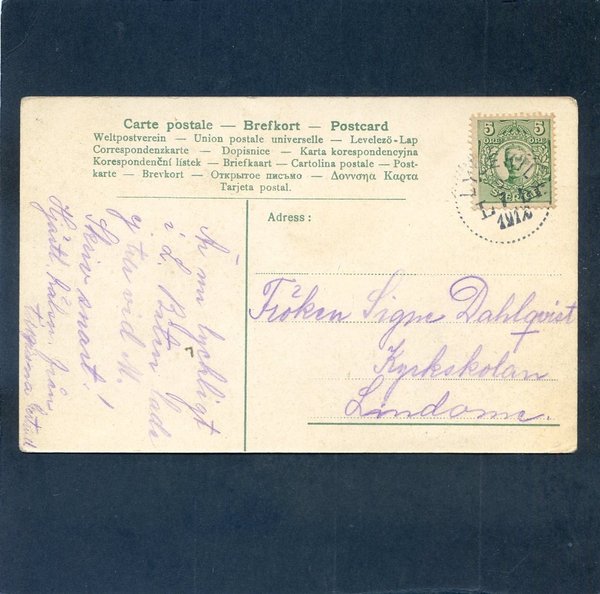 Carte postale — Brefkort — Postcard
Weltpostverein — Union postale universelle — Levelező-Lap
Correspondenzkarte — Dopisnice — Karta korespondencyjna
Korespondenční lístek — Briefkaart — Cartolina postale — Post-
karte — Brevkort — Открытое письмо — Δοννσηα Καρτα
Tarjeta postal.
5 5
ÖRE
Adress:
Fröken Signe Dahlqvist
Kyrkskolan
Lindome.
Är nu lyckligt
i L.
vid M.
Skriv snart!
Hjärtl. hälsn. från